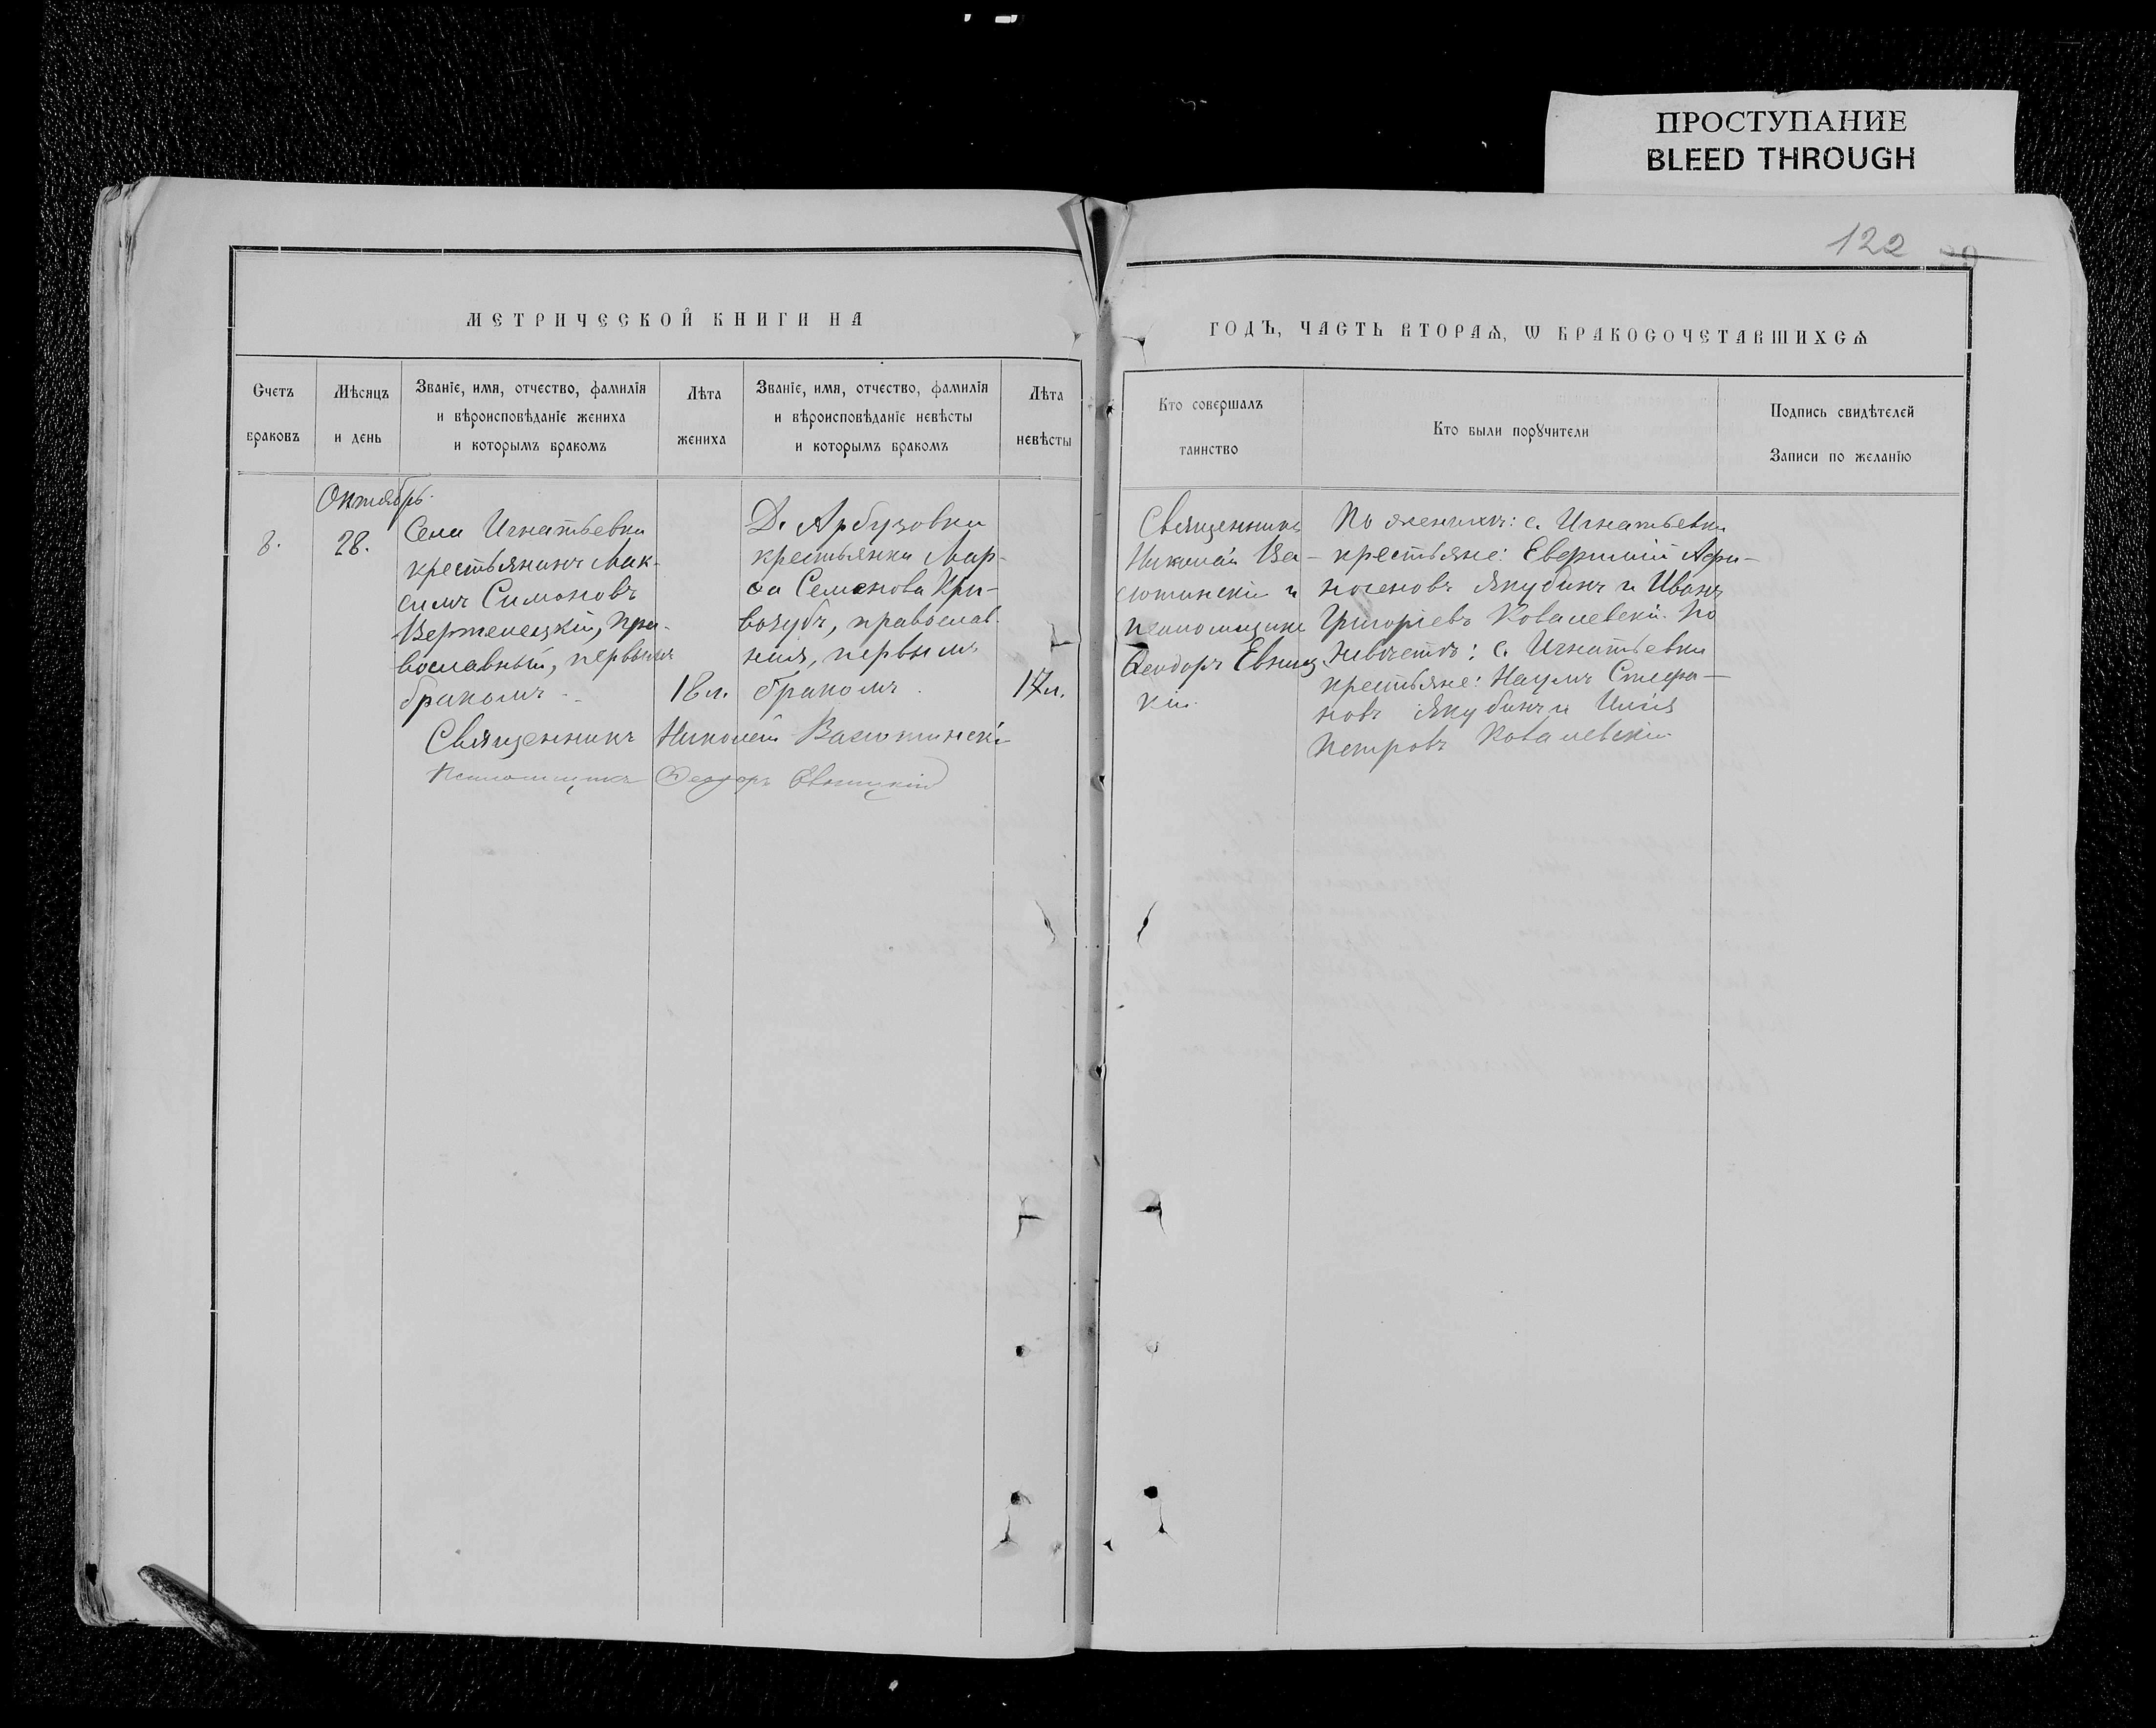 ПРОСТУПАНИЕ
BLEED THROUGH
122
МЕТРИЧЕСКОЙ КНИГИ НА
ГОДЪ, ЧАСТЬ ВТОРАѦ, Ѡ БРАКОСОЧЕТАВШИХСѦ
Счетъ
браковъ
Мѣсяцъ
и день
Званїе, имя, отчество, фамилїя
и вѣроисповѣданїе жениха
и которымъ бракомъ
Лѣта
жениха
Званїе, имя, отчество, фамилїя
и вѣроисповѣданїе невѣсты
и которымъ бракомъ
Лѣта
невѣсты
Кто совершалъ
таинство
Кто были порꙋчители
Подпись свидѣтелей
Записи по желанїю
Октябрь.
8.
28.
Села Игнатьевки
крестьянинъ Мак-
симъ Симоновъ
Вертелецкій, пра-
вославный, первымъ
бракомъ
18 л.
Д. Арбузовки
крестьянка Мар-
ѳа Семенова Кри-
возубъ, православ-
ная, первымъ
бракомъ.
17 л.
Священникъ
Николай Ва-
сютинскій и
псаломщикъ
Ѳеодоръ Евниц
кій.
По женихѣ: с. Игнатьевки
крестьяне: Евфимій Афи-
ногеновъ Якубинъ и Иванъ
Григоріевъ Ковалевскій. По
невѣстѣ: с. Игнатьевки
крестьяне: Наумъ Стефа-
новъ Якубинъ и Илія
Петровъ Ковалевскій
Священникъ Николай Васютинскій
Псаломщикъ Ѳеодоръ Евницкій